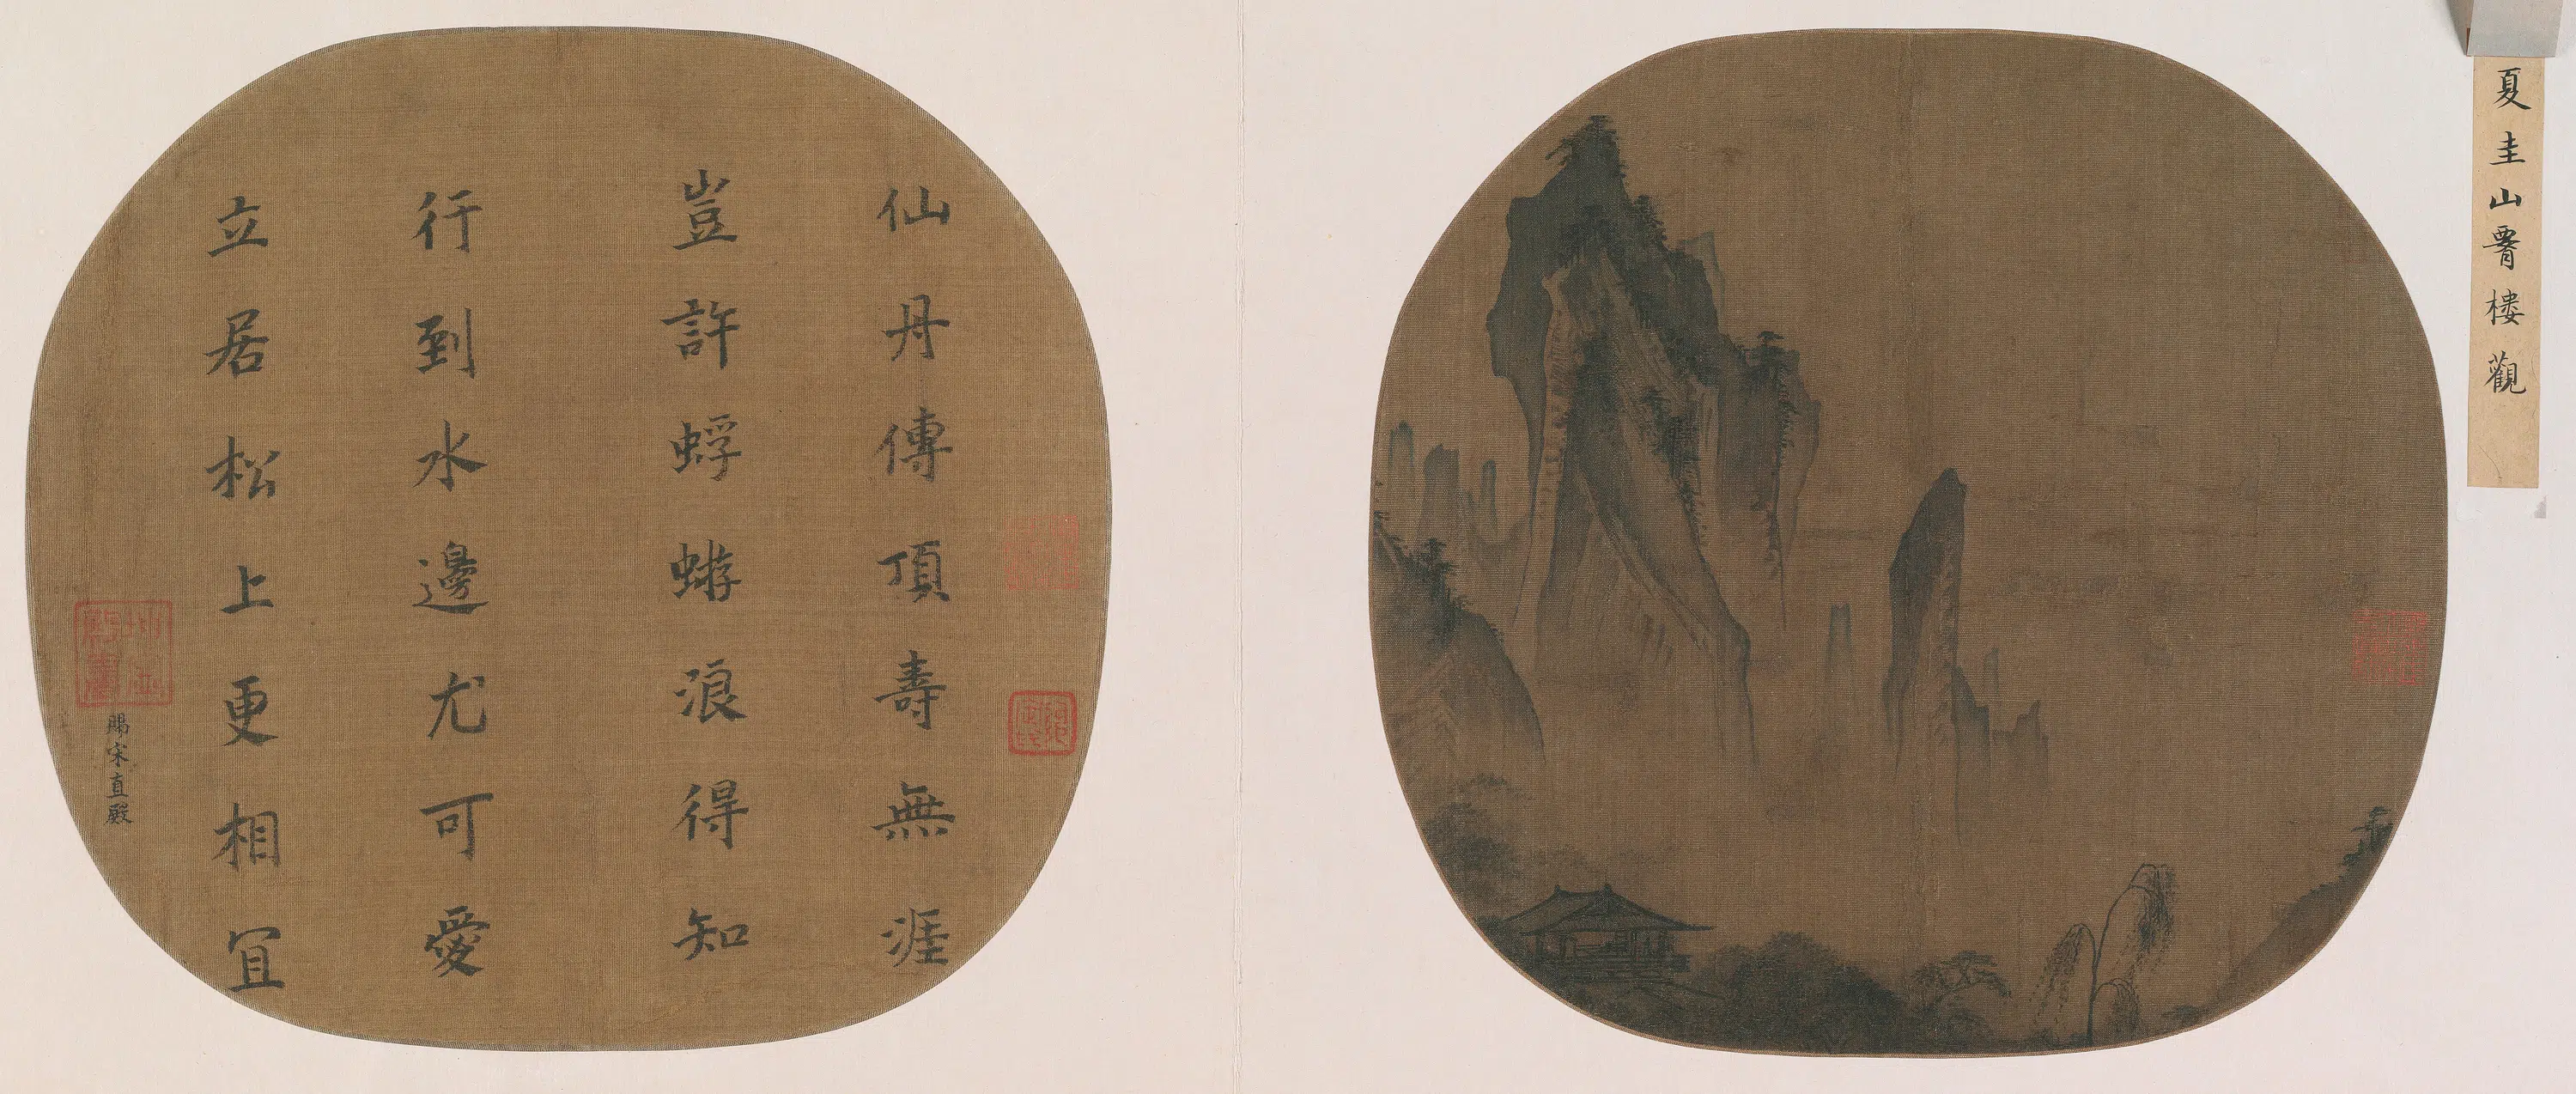 夏圭山𦝫樓觀
仙丹傳頂壽無涯
豈許蜉蝣浪得知
行到水邊尤可愛
立居松上更相宜
賜宋直殿